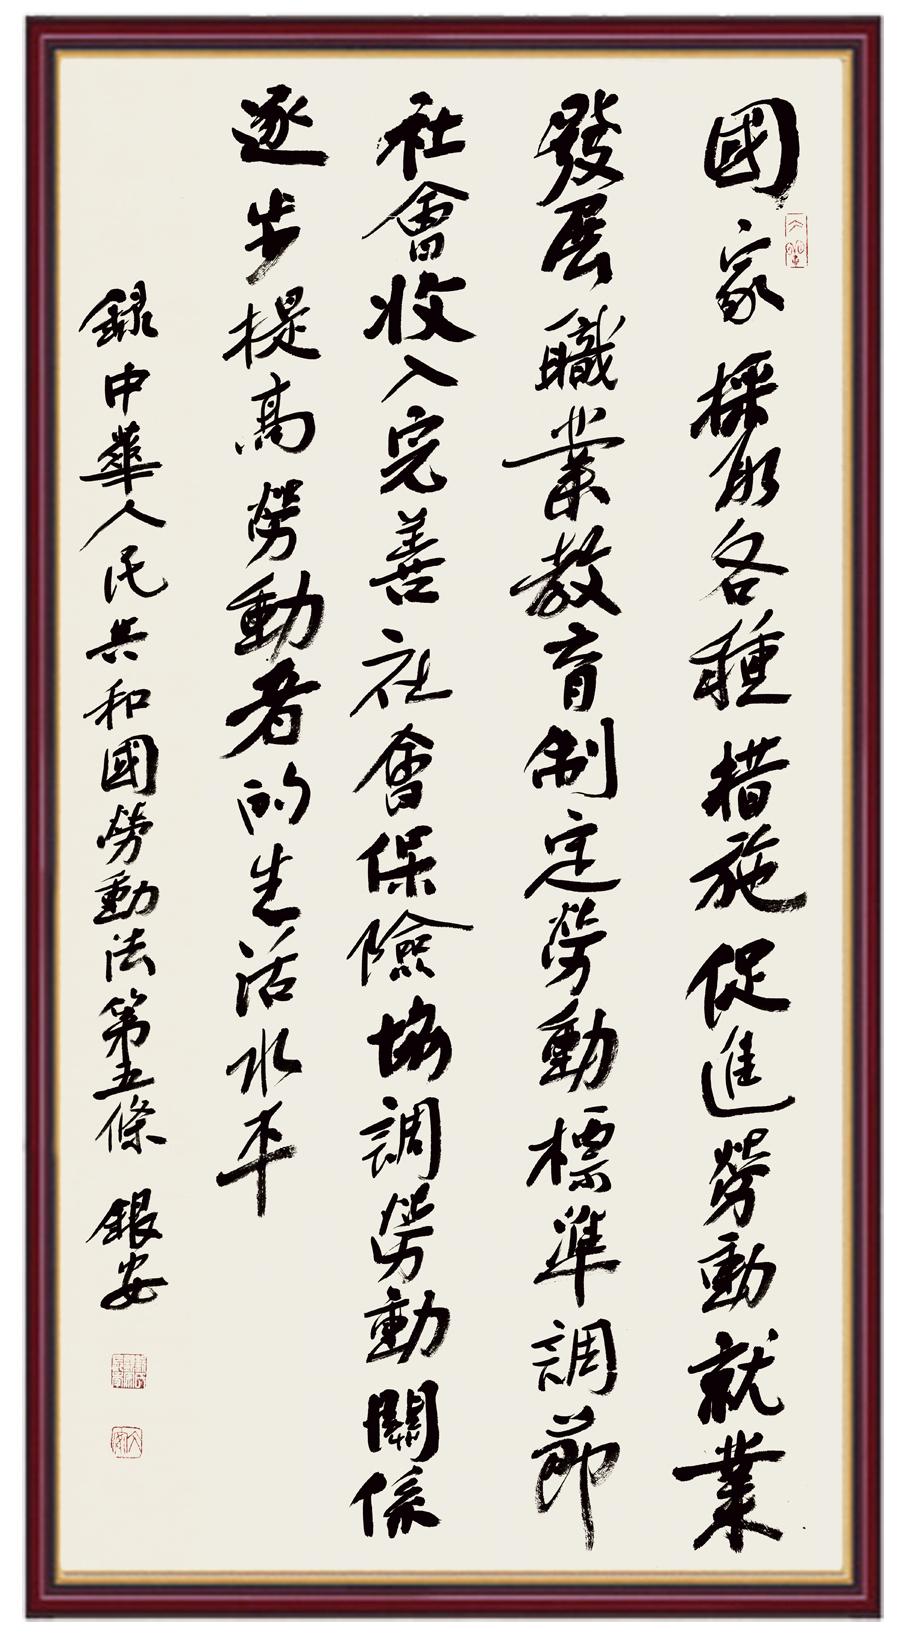 國家採取各種措施促進勞動就業
發展職業教育制定勞動標準調節
社會收入完善社會保險協調勞動關係
逐步提高勞動者的生活水平
錄中華人民共和國勞動法第五條 銀安